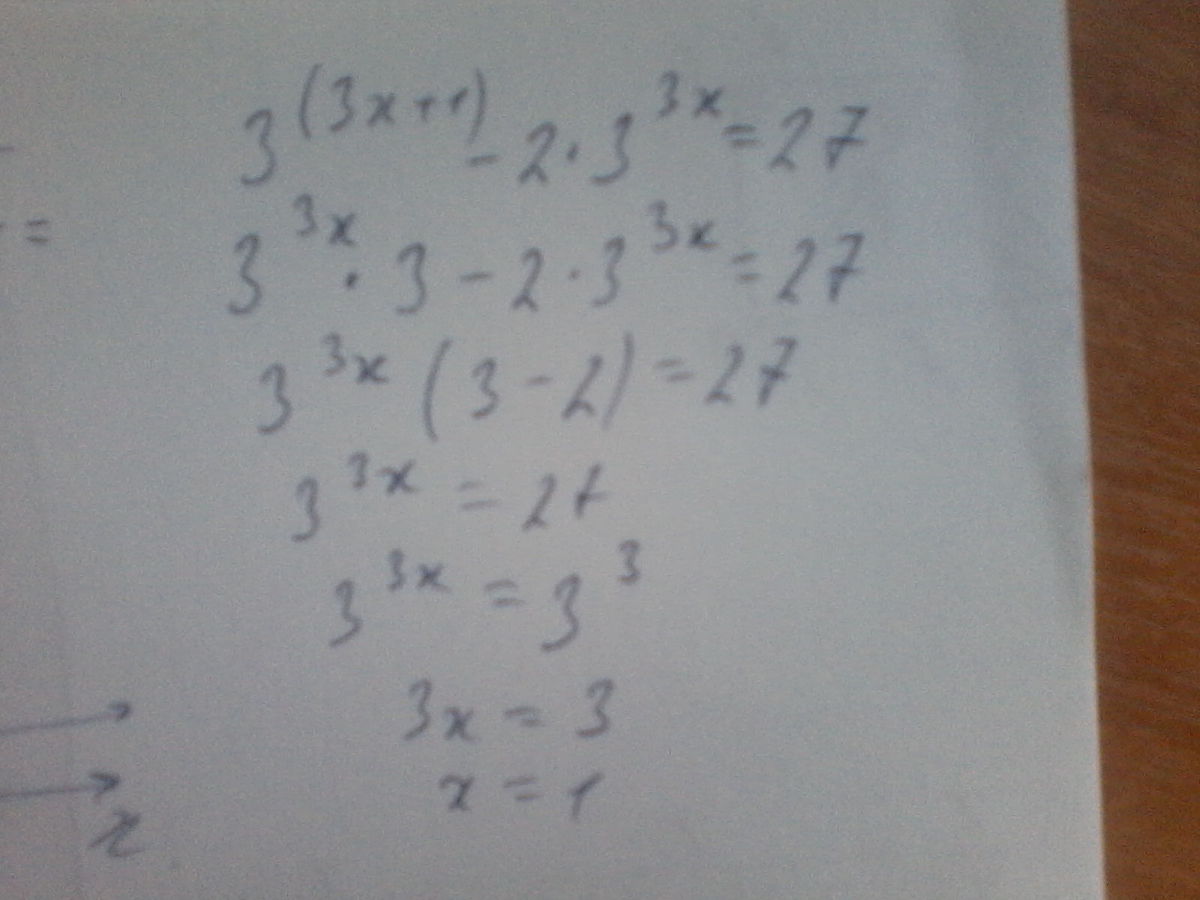 3^(3x+1) - 2·3^3x = 27
=
3^3x · 3 - 2·3^3x = 27
3^3x (3-2) = 27
3^3x = 27
3^3x = 3^3
3x = 3
x = 1
x